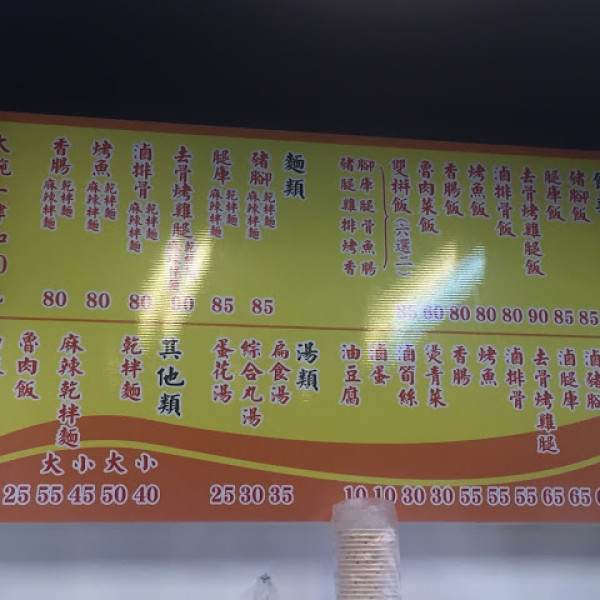 豬腳飯
腿庫飯
去骨烤雞腿飯
滷排骨飯
烤魚飯
香腸飯
魯肉菜飯
雙拼飯(六選二)
腳庫腿骨魚腸
豬腿雞排烤香
85 60 80 80 80 90 85 85
麵類
豬腳 乾拌麵 麻辣拌麵
腿庫 乾拌麵 麻辣拌麵
去骨烤雞腿 乾拌麵 麻辣拌麵
滷排骨 乾拌麵 麻辣拌麵
烤魚 乾拌麵 麻辣拌麵
香腸 乾拌麵 麻辣拌麵
80 80 80 90 85 85
滷豬腳
滷腿庫
去骨烤雞腿
滷排骨
烤魚
香腸
燙青菜
滷筍絲
滷蛋
油豆腐
10 10 30 30 55 55 55 65 65
湯類
扁食湯
綜合丸湯
蛋花湯
25 30 35
其他類
乾拌麵
麻辣乾拌麵
魯肉飯
大 小 大 小
25 55 45 50 40